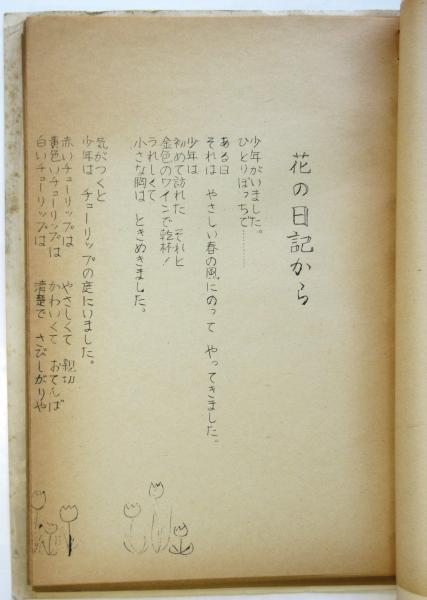 花の日記から
少年がいました。
ひとりぼっちで…………
ある日
それは やさしい春の風にのって やってきました。
少年は
初めて訪れた それと
金色のワインで乾杯!
うれしくて
小さな胸は ときめきました。
気がつくと
少年は チューリップの庭にいました。
赤いチューリップは やさしくて 親切
黄色いチューリップは かわいくて おてんば
白いチューリップは 清楚で さびしがりや